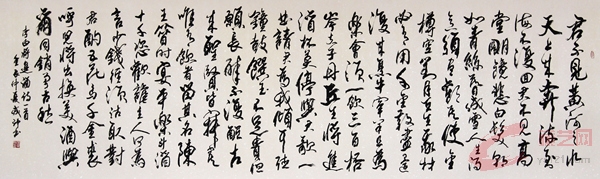 君不見黃河之水
天上來奔流到
海不復回君不見高
堂明鏡悲白髮朝
如青絲暮成雪人生得
意須盡歡莫使金
樽空對月天生我材
必有用千金散盡還
復來烹羊宰牛且為
樂會須一飲三百杯
岑夫子丹丘生將進
酒杯莫停與君歌一
曲請君為我傾耳聽
鐘鼓饌玉不足貴但
願長醉不復醒古
來聖賢皆寂寞
唯有飲者留其名陳
王昔時宴平樂斗酒
十千恣歡謔主人何為
言少錢徑須沽取對
君酌五花馬千金裘
呼兒將出換美酒與
爾同銷萬古愁
李白將進酒詩一首